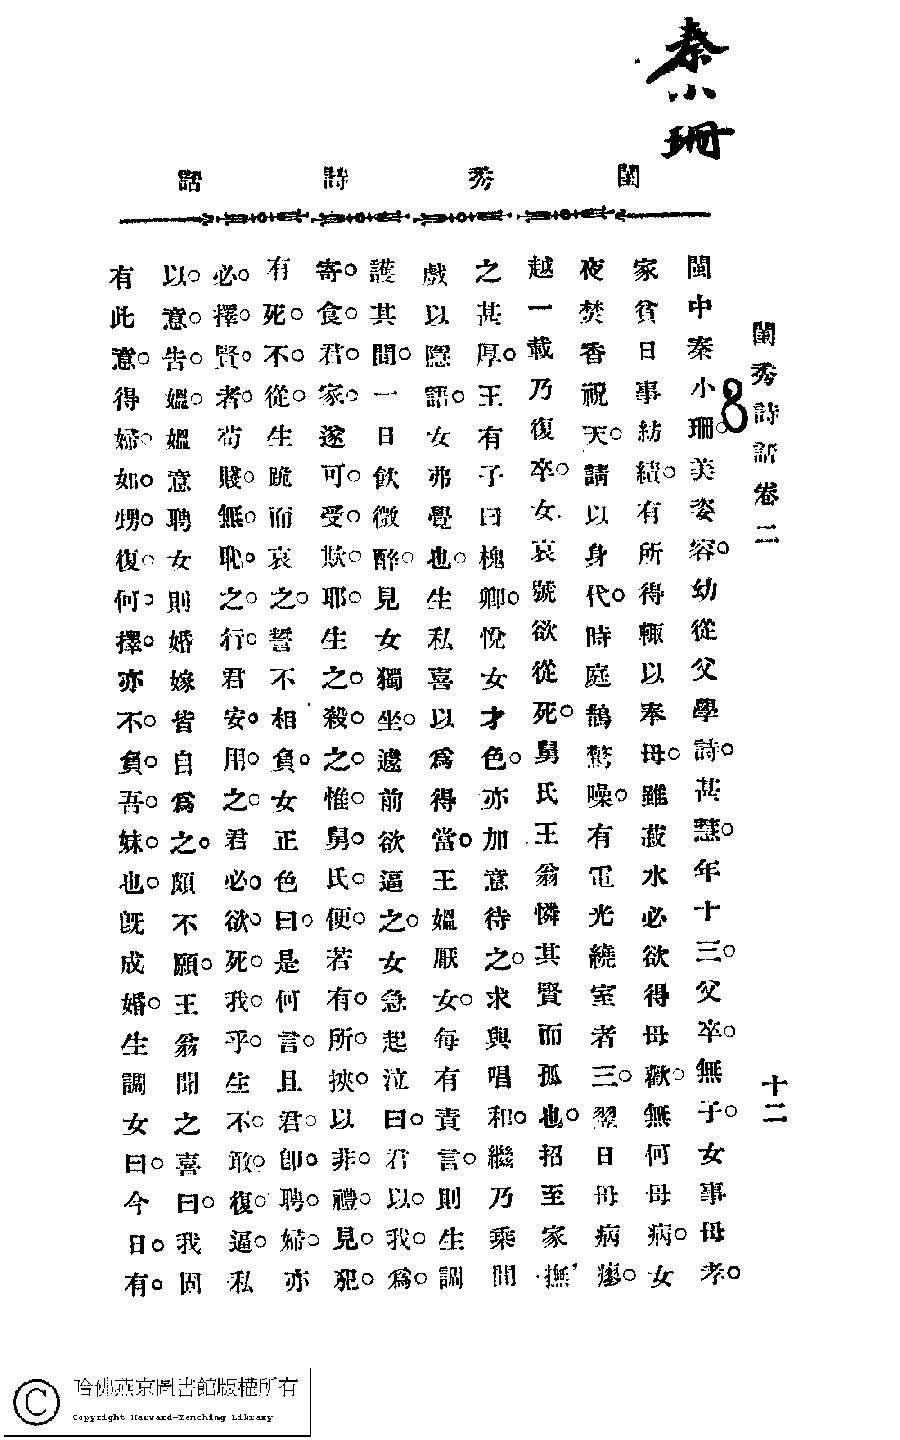 秦小珊
閨秀詩話
閨秀詩話卷二
十二
8
閩中秦小珊。美姿容。幼從父學詩。甚慧。年十三。父卒。無子。女事母孝。
家貧日事紡績。有所得輒以奉母。雖菽水必欲得母歡。無何母病。女
夜焚香祝天。請以身代。時庭鵲驚噪。有電光繞室者三。翌日母病瘳。
越一載乃復卒。女哀號欲從死。舅氏王翁憐其賢而孤也。招至家撫
之甚厚。王有子曰槐卿。悅女才色。亦加意待之。求與唱和。繼乃乘間
戲以隱語。女弗覺也。生私喜以爲得當。王媼厭女。每有責言。則生調
護其間。一日飲微醉。見女獨坐。遽前欲逼之。女急起泣曰。君以我爲
寄食君家。遂可受欺耶。生之。殺之。惟舅氏便。若有所挾。以非禮見犯。
有死不從。生跪而哀之。誓不相負。女正色曰。是何言。且君卽聘婦。亦
必擇賢者。苟賤無恥之行。君安用之。君必欲死我乎。生不敢復逼。私
以意告媼。媼意聘女則婚嫁皆自爲之。頗不願。王翁聞之喜曰。我固
有此意。得婦如甥。復何擇。亦不負吾妹也。旣成婚。生調女曰。今日有。
哈佛燕京圖書館版權所有
Copyright Harvard-Yenching Library